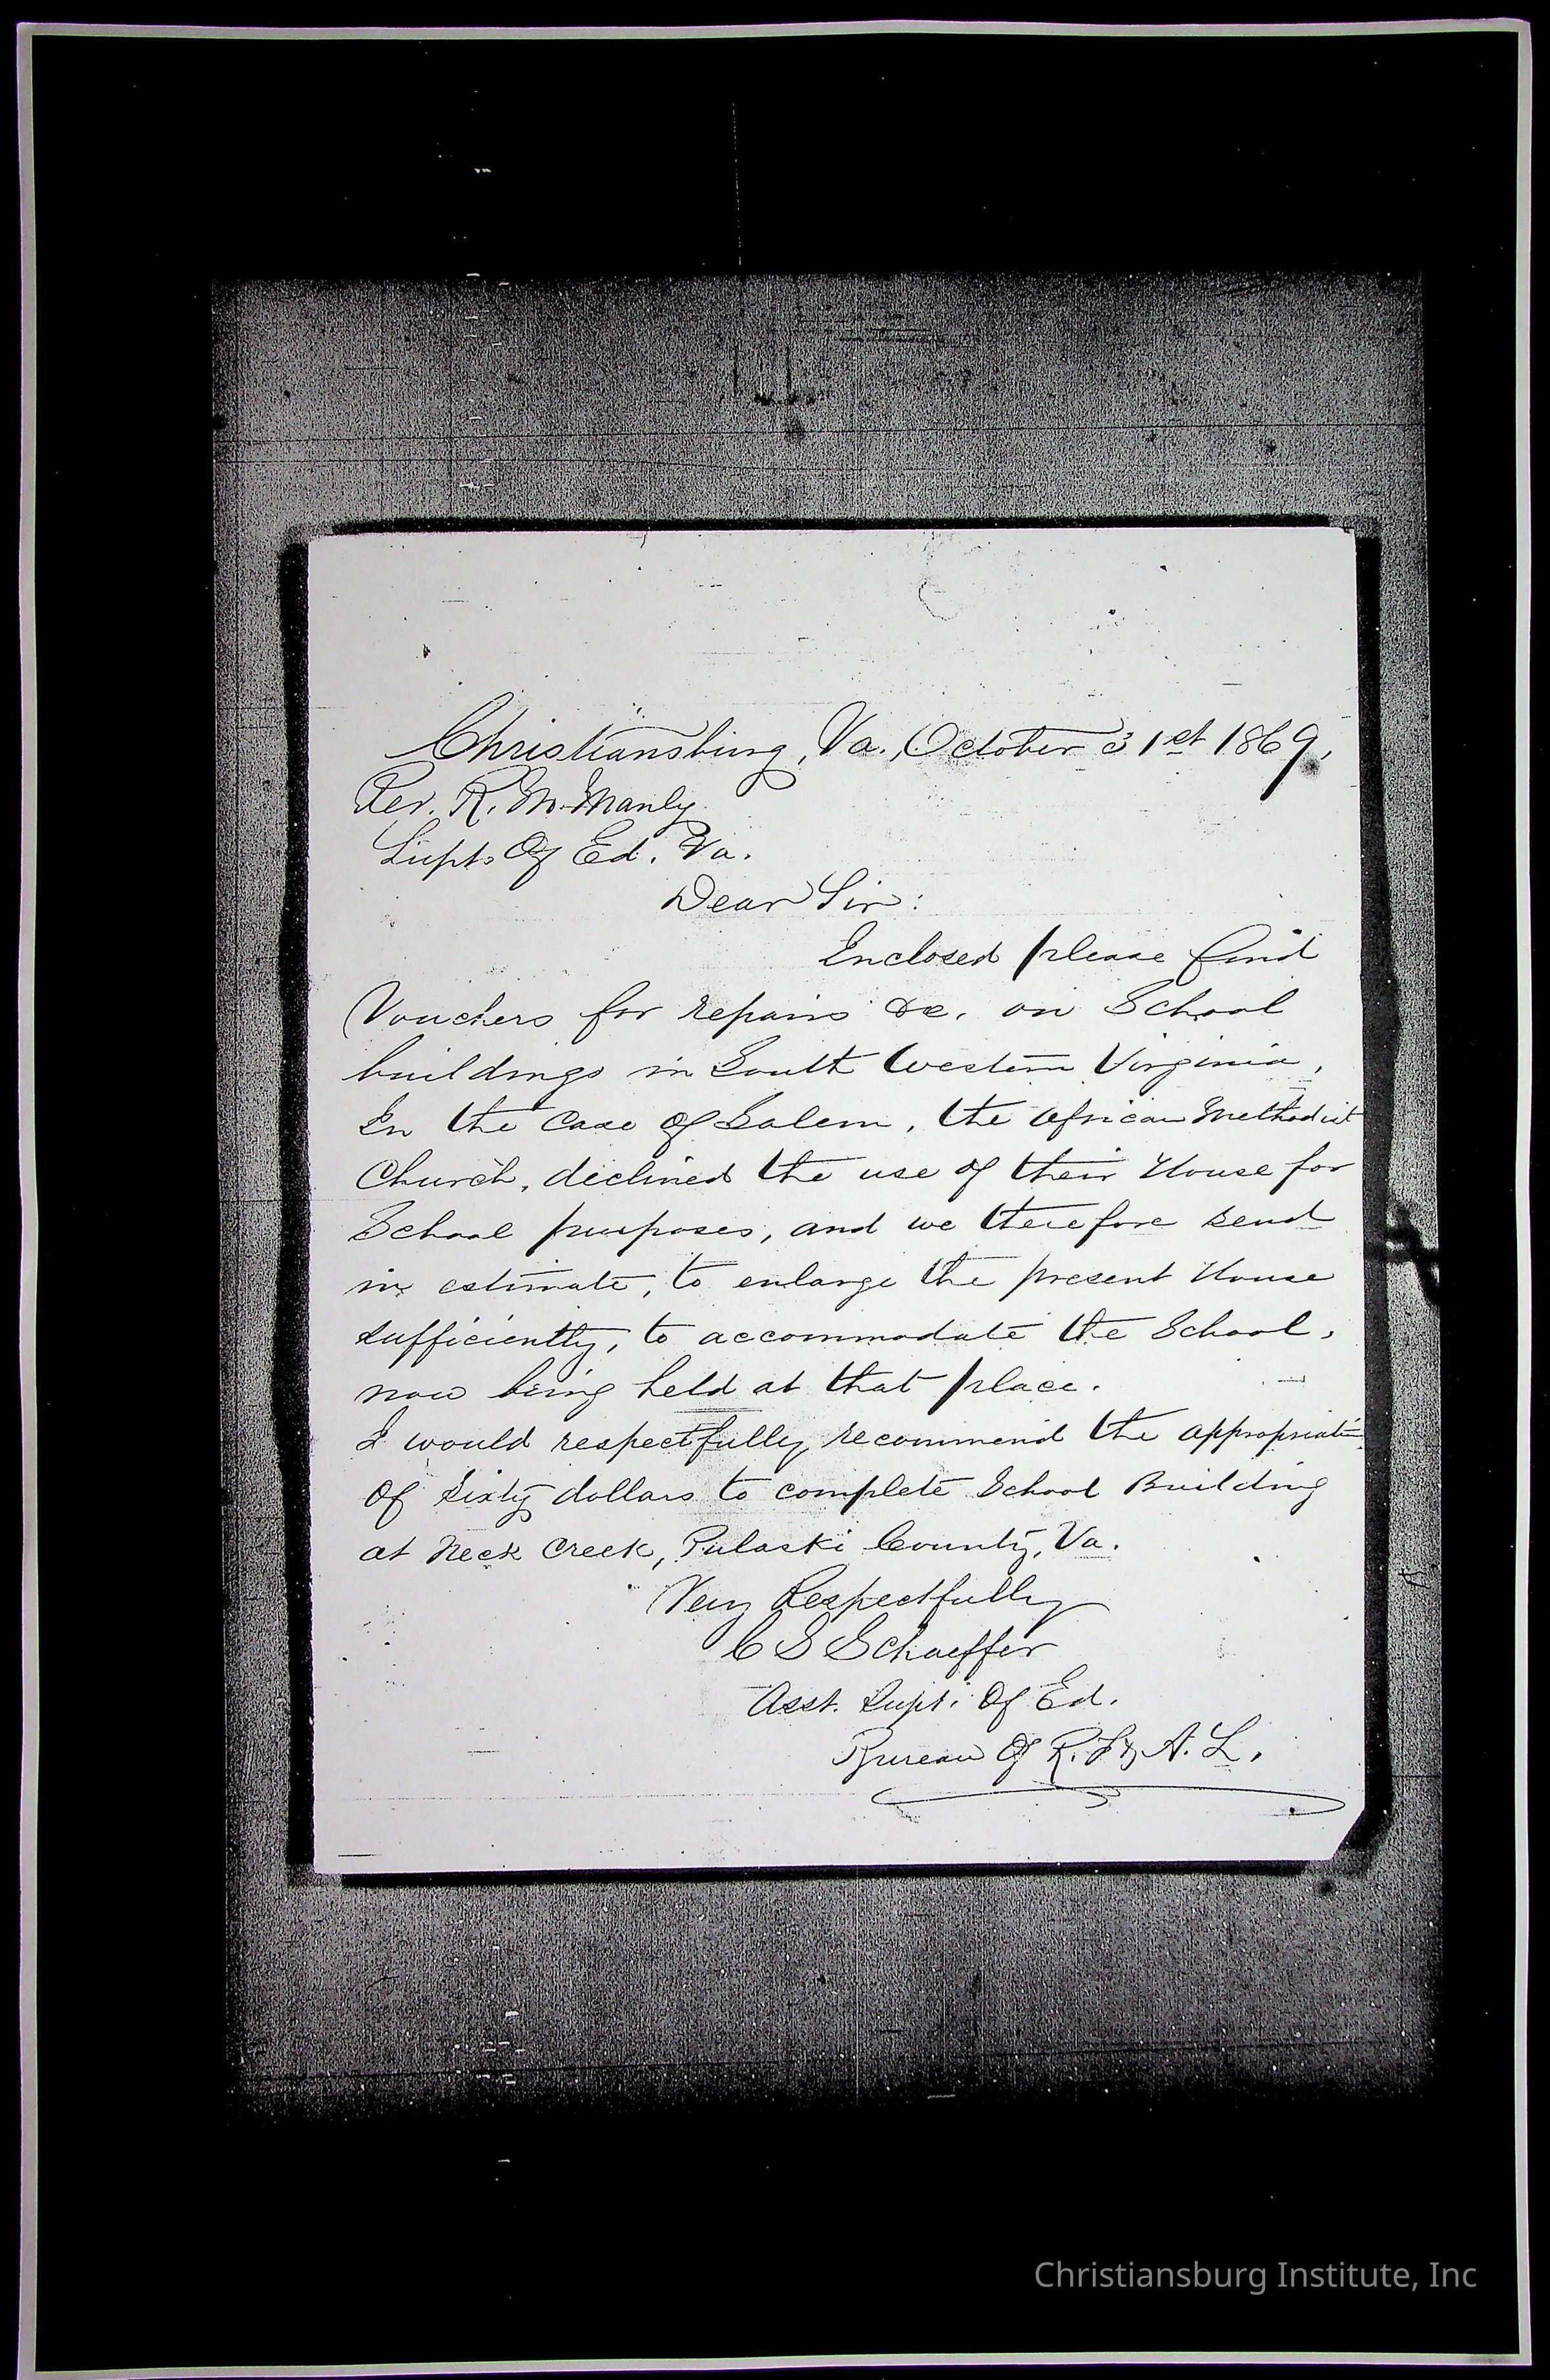 Christiansburg, Va., October 31st 1869,
Rev. R. M. Manly
Supt. Of Ed. Va.
Dear Sir:
Enclosed please find
Vouchers for repairs &c. on School
buildings in South Western Virginia,
In the case of Salem, the African Methodist
Church, declined the use of their House for
School purposes, and we therefore send
in estimate, to enlarge the present House
sufficiently, to accommodate the School,
now being held at that place.
I would respectfully recommend the appropriation
Of Sixty dollars to complete School Building
at Neck Creek, Pulaski County, Va.
Very Respectfully
C S Schaeffer
Asst. Supt. Of Ed.
Bureau Of R. F & A. L.
Christiansburg Institute, Inc